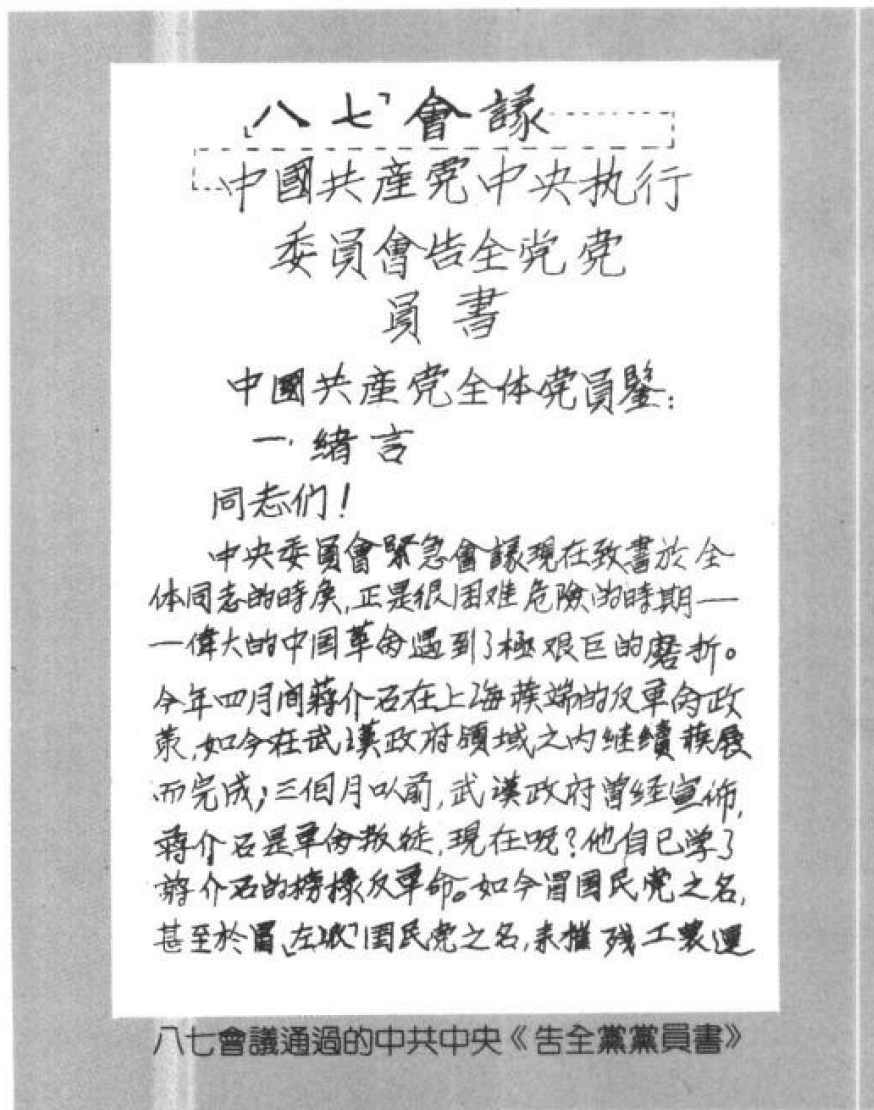 「八七」會議
中國共產党中央执行
委員會告全党党
員書
中國共產党全体党員鑒：
一．緒言
同志们！
中央委員會緊急會議現在致書於全
体同志的時候，正是很困难危險的時期—
—偉大的中国革命遇到了極艰巨的磨折。
今年四月间蔣介石在上海發端的反革命政
策，如今在武漢政府領域之内继續發展
而完成；三個月以前，武漢政府曾经宣佈，
蔣介石是革命叛徒，現在呢？他自己学了
蔣介石的榜樣反革命。如今冒國民党之名，
甚至於冒「左派」国民党之名，来摧残工农運
八七會議通過的中共中央《告全黨黨員書》